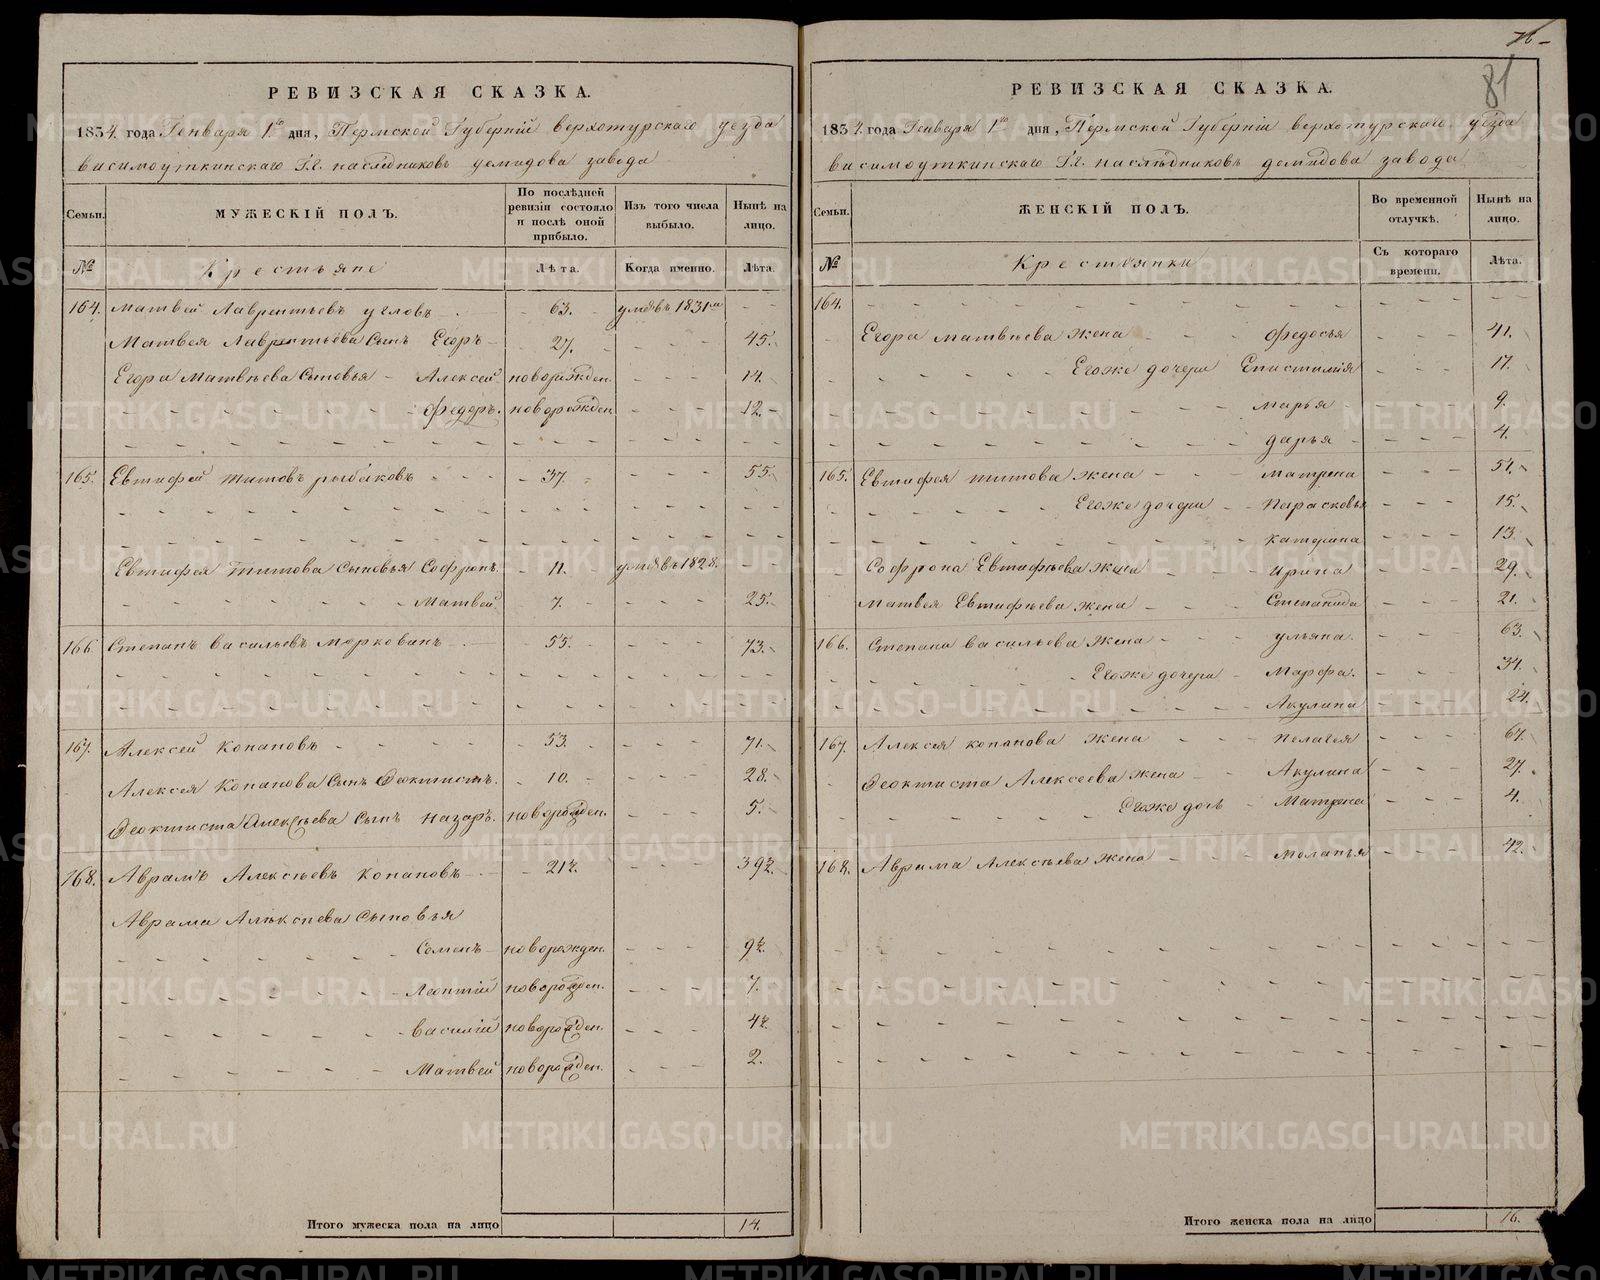 РЕВИЗСКАЯ СКАЗКА.
1834. года Генваря 1го дня, Пермской Губернiи верхотурскаго уезда
васимоуткинскаго Г.г. наслѣдниковъ демидова завода
Семьи.
МУЖЕСКIЙ ПОЛЪ.
По послѣдней ревизiи состояло и послѣ оной прибыло.
Изъ того числа выбыло.
Нынѣ на лицо.
№
Крестьяне
Лѣта.
Когда именно.
Лѣта.
164. Матвей Лаврентьевъ угловъ 63. умѣ въ 1831м
Матвея Лаврентьева Сынъ Егоръ 27. 45.
Егора Матвѣева Сыновья Алексей новорожден. 14.
Федоръ. новорожден 12.
165. Евтифей титовъ рыбаковъ 37. 55.
Евтифея титова Сыновья Софронъ. 11. умѣ въ 1828.
Матвей 7. 25.
166. Степанъ васильевъ морковинъ 55. 73.
167. Алексей Копановъ 53. 71.
Алексея Копанова Сынъ Феоктистъ. 10. 28.
Феоктиста Алексѣева Сынъ назаръ. новорожден. 5.
168. Аврамъ Алексѣевъ Копановъ 21½. 39½.
Аврама Алексеева Сыновья
Семенъ новорожден. 9½.
Леонтiй новорожден. 7.
василiй новорожден. 4½
Матвей новорожден. 2.
Итого мужеска пола на лицо 14.
81
РЕВИЗСКАЯ СКАЗКА.
1834. года Генваря 1го дня, Пермской Губернiи верхотурскаго уѣзда
васимоуткинскаго Г.г. наслѣдниковъ демидова завода
Семьи.
ЖЕНСКIЙ ПОЛЪ.
Во временной отлучкѣ.
Нынѣ на лицо.
№
Крестьянки
Съ котораго времени.
Лѣта.
164.
Егора матвѣева жена федосья 41.
Егоже дочери Епистимiя 17.
марья 9.
дарья 4.
165. Евтифея титова жена матрена 51.
Егоже дочери Парасковья 15.
катерина 13.
Софрона Евтифѣева жена ирина 29.
матвея Евтифѣева жена Степанида 21.
166. Степана васильева жена ульяна. 63.
Егоже дочери Марфа. 31.
Акулина 24.
167. Алексея копанова жена пелагея 67.
Феоктиста Алексеева жена Акулина 27.
Егоже дочь Матрена 4.
168. Аврама Алексѣева жена Маланья 42.
Итого женска пола на лицо 16.
METRIKI.GASO-URAL.RU